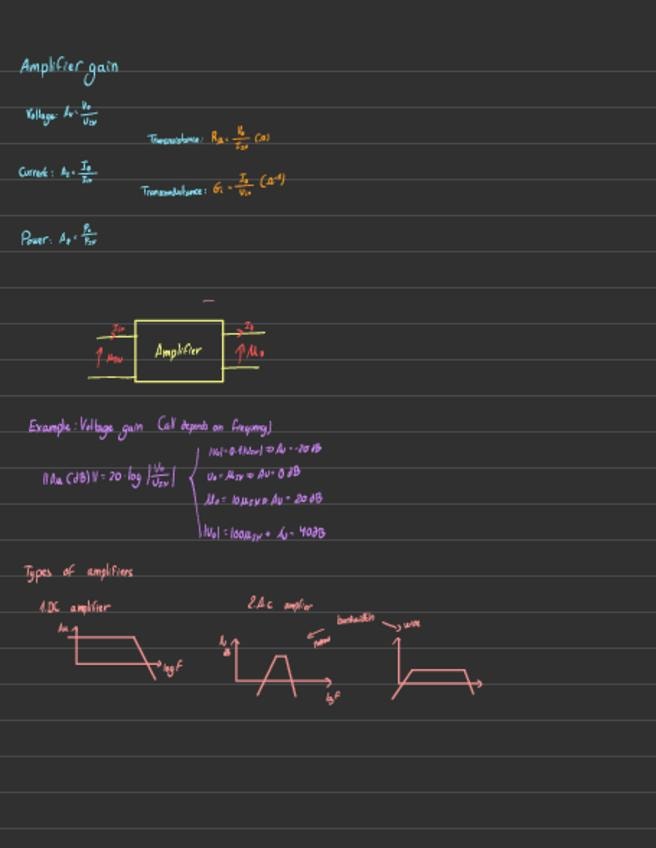 Amplifier gain
Voltage: Av = Vo/VIN
Transresistance: RΩ = Vo/IIN (Ω)
Current: AI = Io/Iin
Transconductance: = Io/Vin (Ω⁻¹)
Power: Ap = Po/PIN
Iin
Io
Amplifier
Example: Voltage gain (all depends on frequency)
= 20·log |Vo/UIN|
|Vo| = 0.1|UIN| ⇒ Av = -20dB
Uo = UIN ⇒ Av = 0dB
Uo = 10UIN ⇒ Av = 20dB
|Uo| = 100UIN ⇒ Av = 40dB
Types of amplifiers
1.DC amplifier
2.Ac amplifier
bandwidth
wide
Au
log F
dB
log F